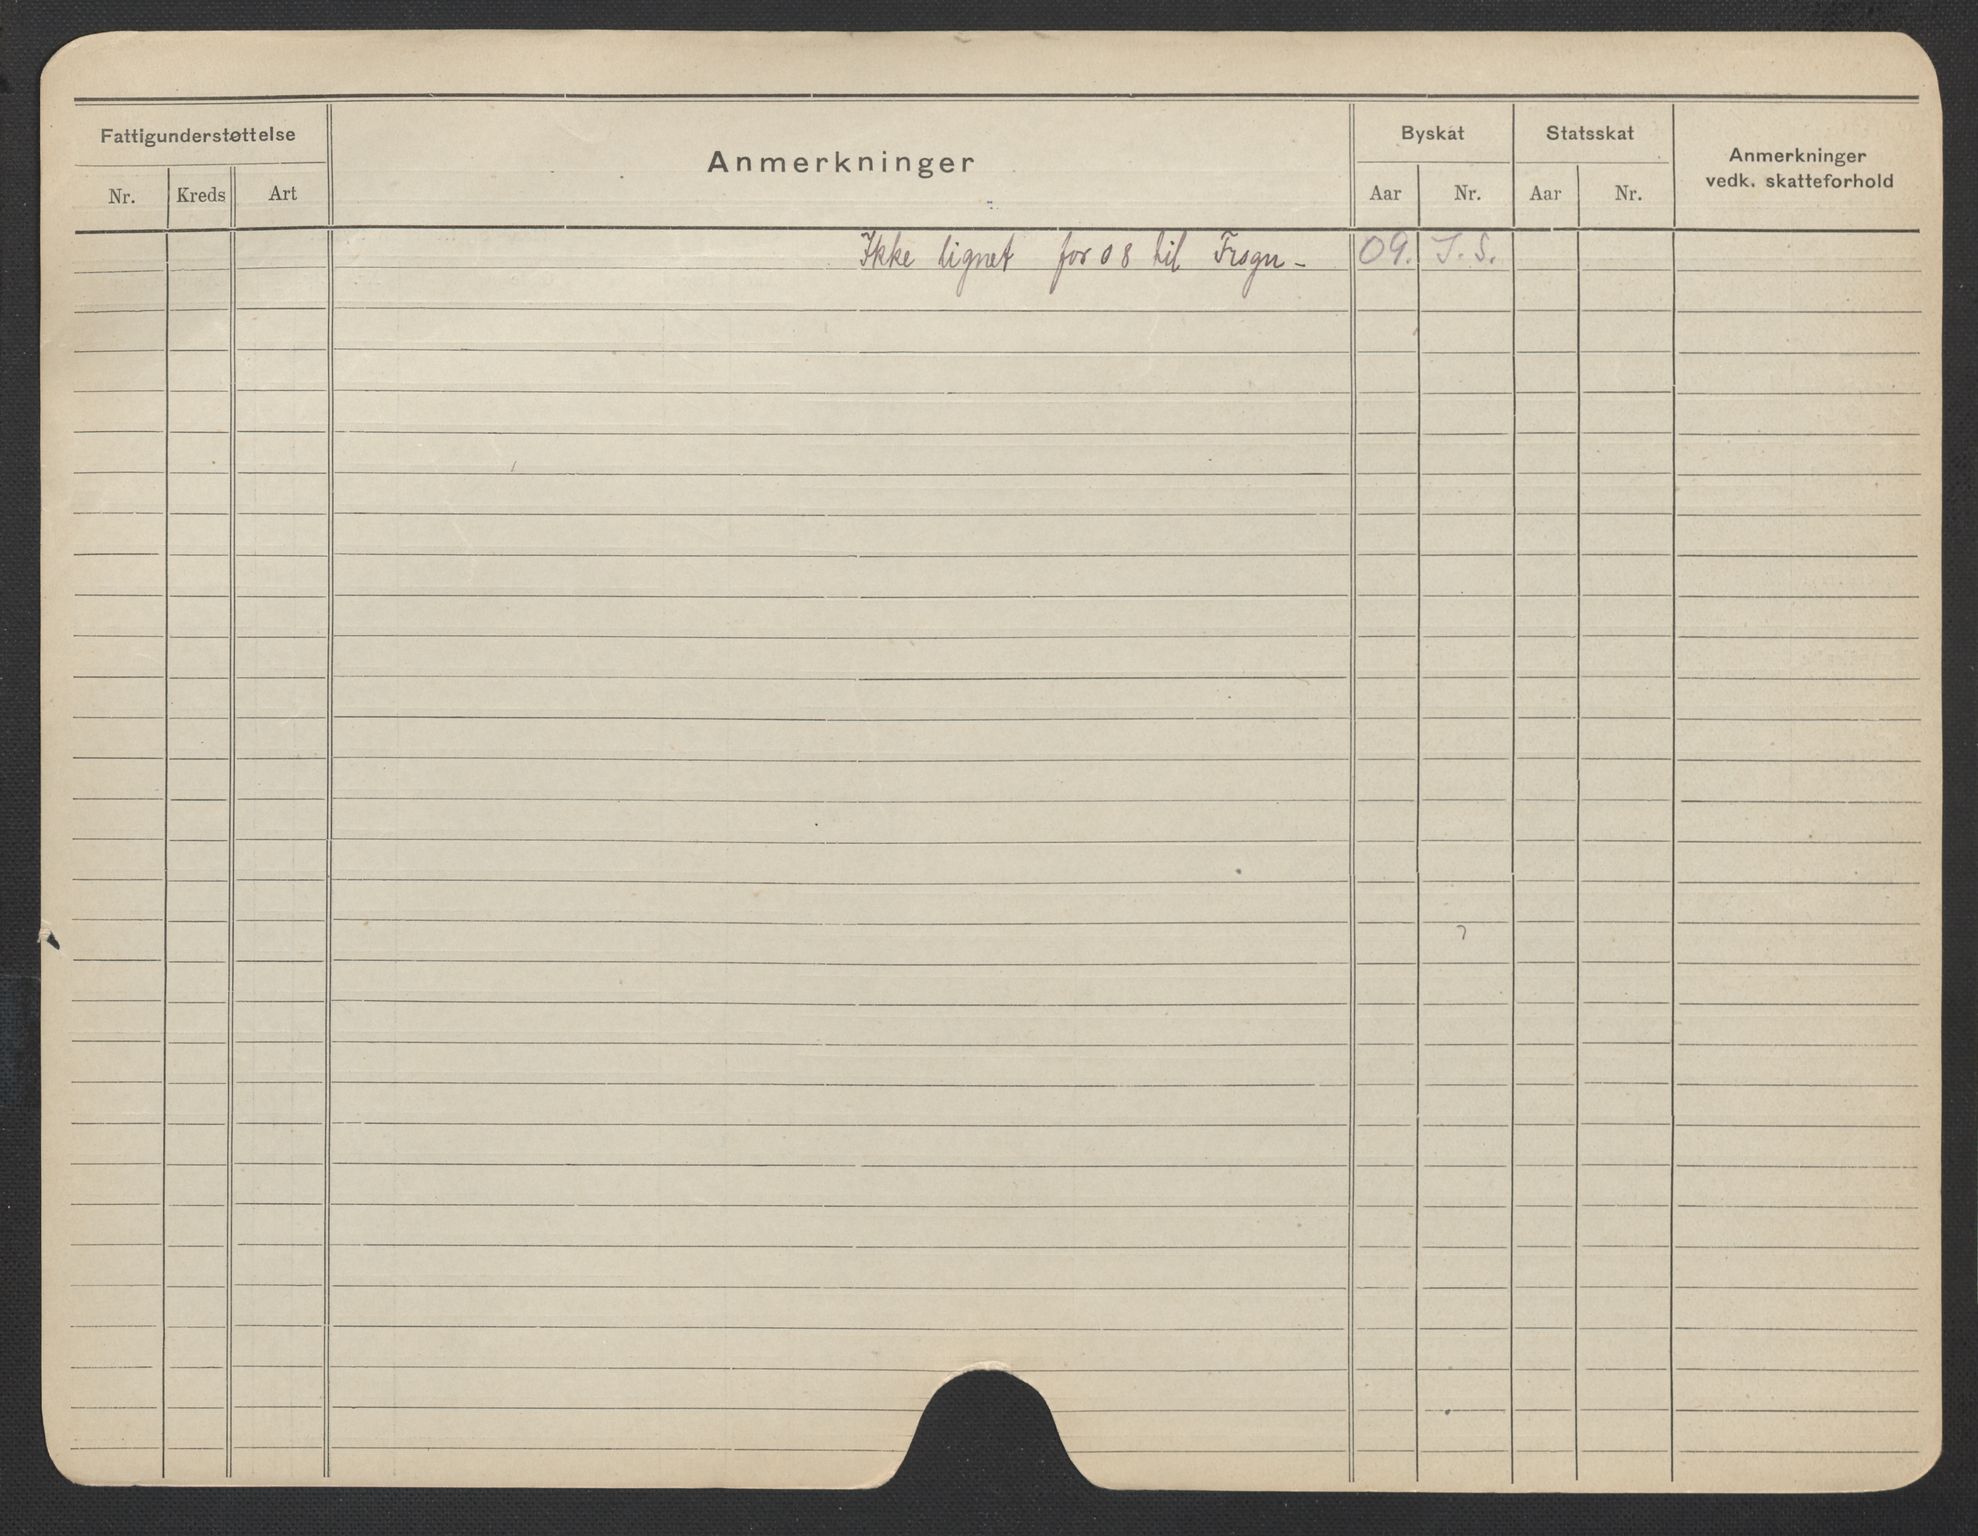 Fattigunderstøttelse
Nr. Kreds Art
Anmerkninger
Byskat
Aar Nr.
Statsskat
Aar Nr.
Anmerkninger
vedk. skatteforhold
Ikke lignet for 08 til Frogn - 09. I. S.